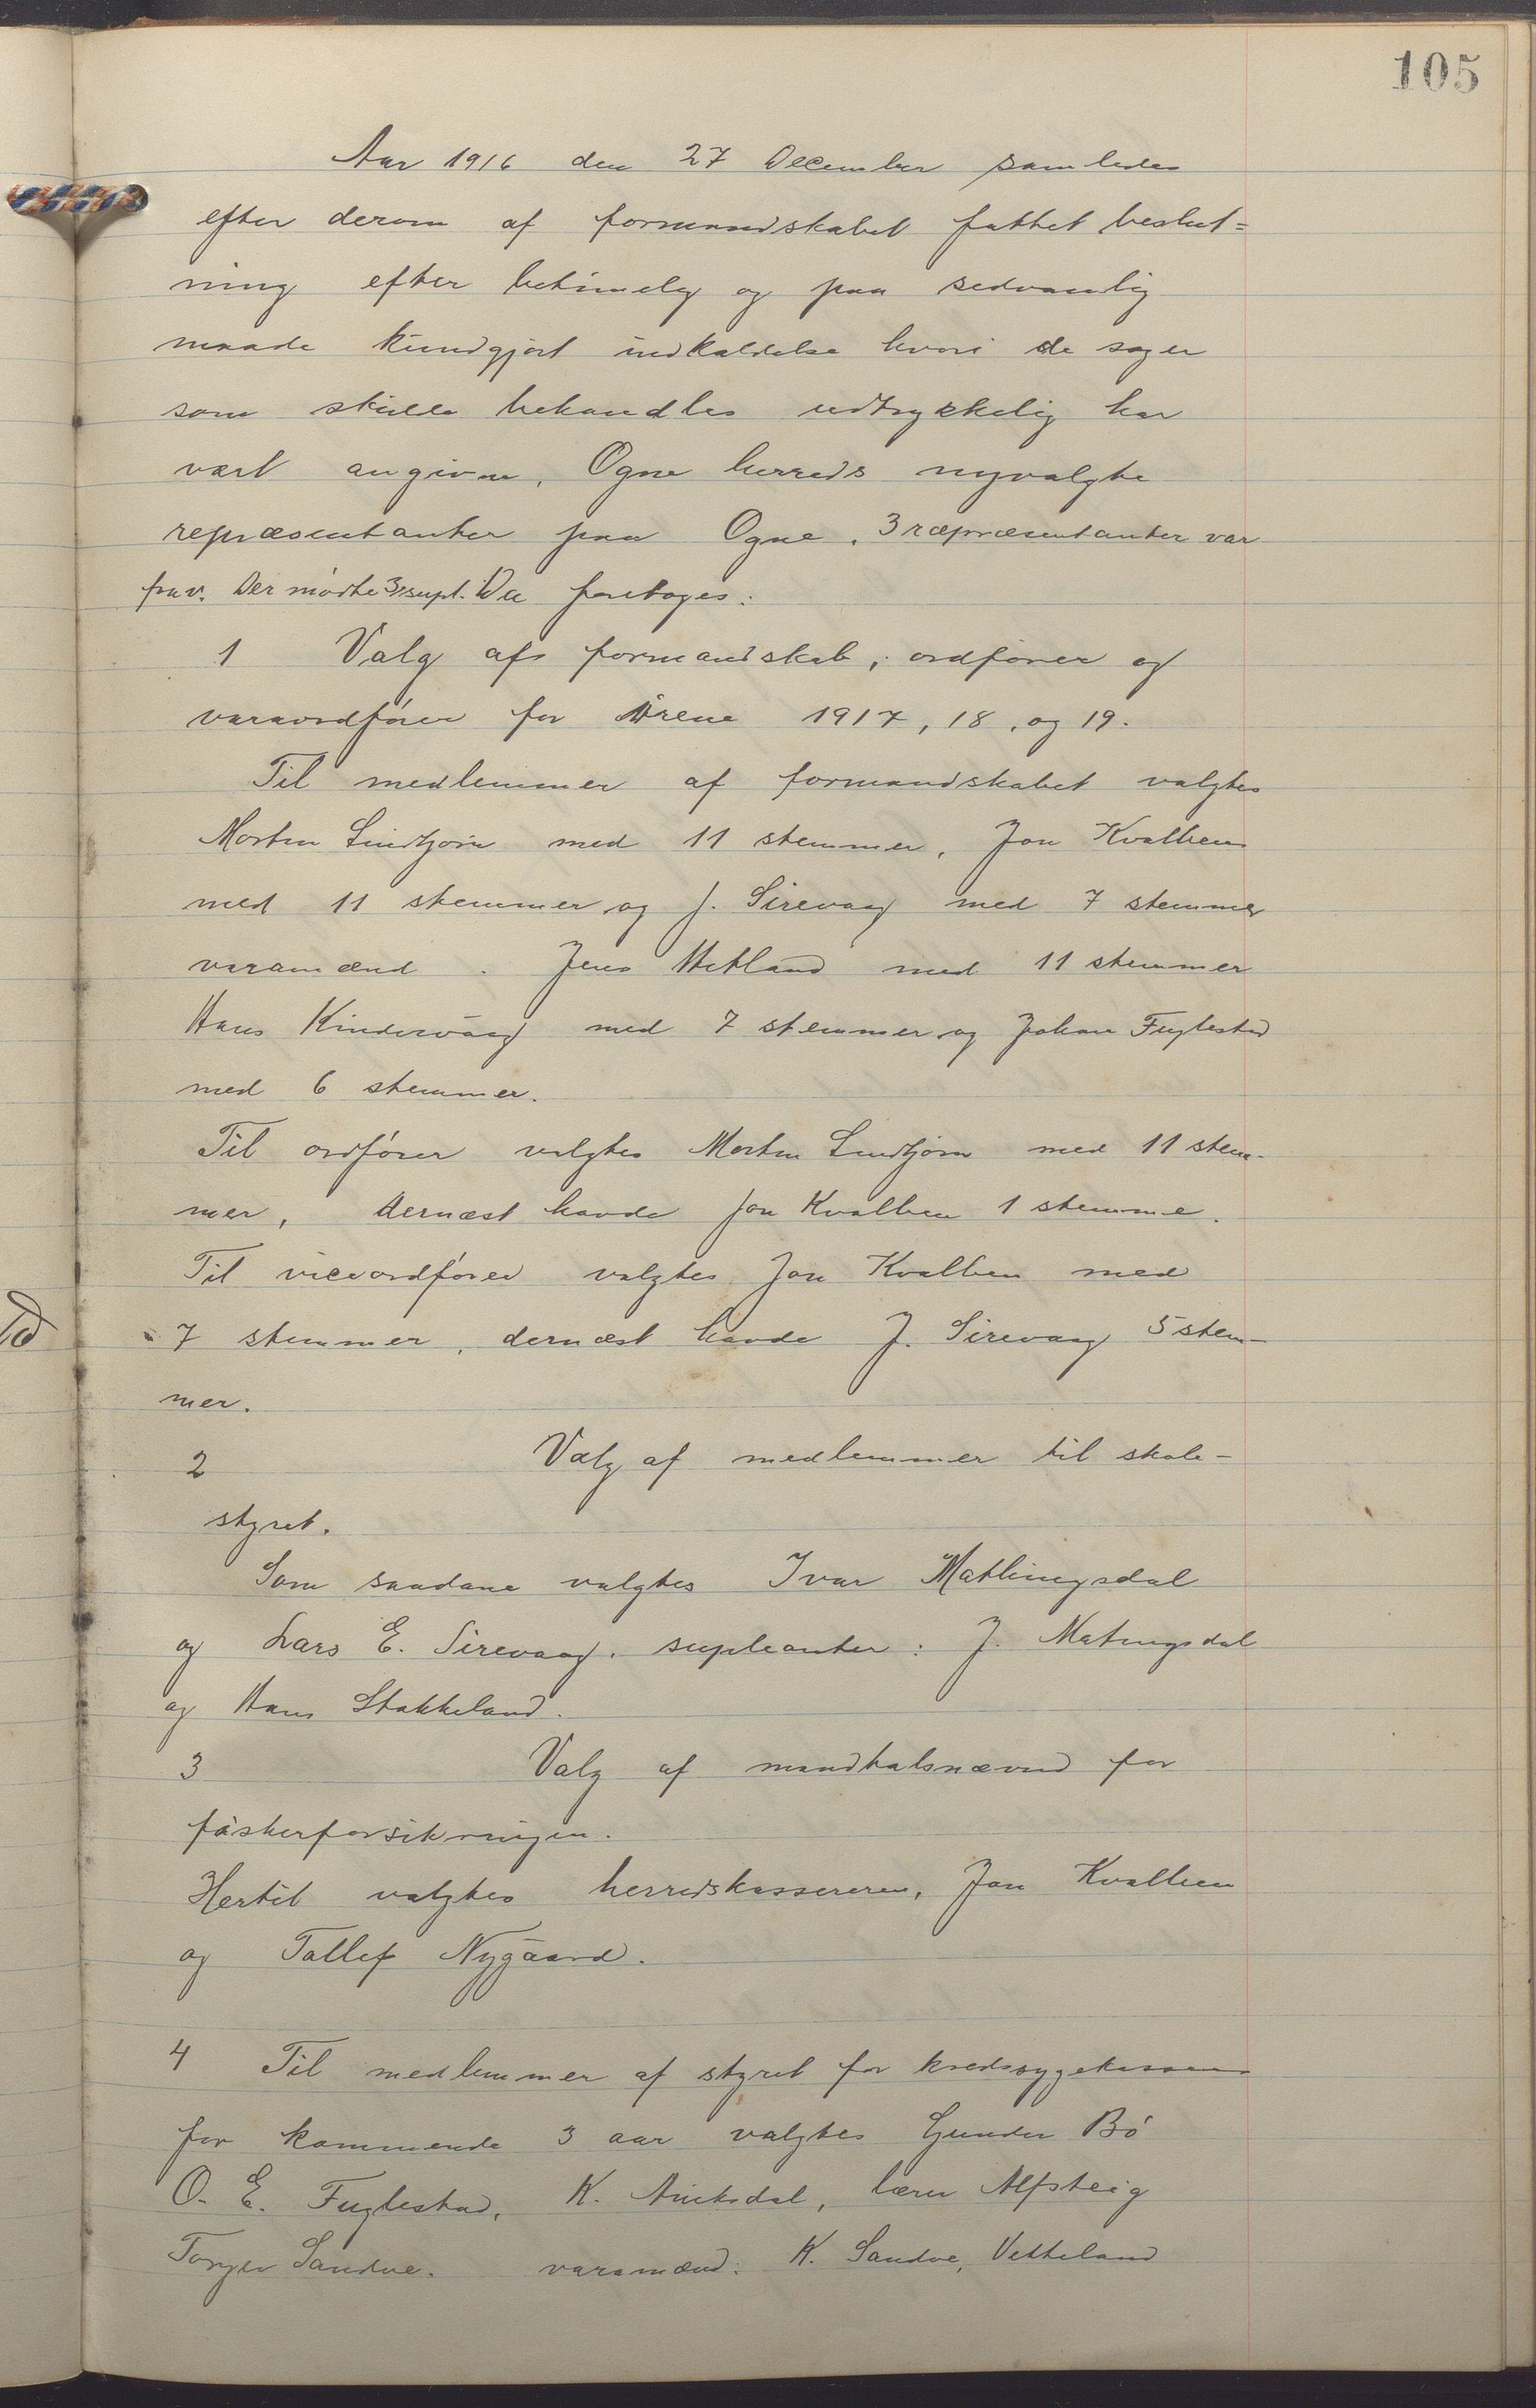 105
Aar 1916 den 27 December samledes
efter derom af formandskabet fattet beslut=
ning efter betimelig og paa sedvanlig
maade kundgjort indkaldelse hvori de sager
som skulle behandles udtrykkelig har
vært angivne, Ogne herreds nyvalgte
repræsentanter paa Ogne. 3 ræpræsentanter var
frav. Der mødte 3 supl. Da foretoges:
1 Valg af formandskab, ordfører og
varaordfører for årene 1917, 18, og 19.
Til medlemmer af formandskabet valgtes
Morten Lindtjørn med 11 stemmer, Jon Kvalbein
med 11 stemmer og J. Sirevaag med 7 stemmer
varamænd. Jens Hetland med 11 stemmer
Hans Kindervaag med 7 stemmer og Johan Fuglestad
med 6 stemmer.
Til ordfører valgtes Morten Lindtjørn med 11 stem-
mer, dernæst havde Jon Kvalbein 1 stemme.
Til viceordfører valgtes Jon Kvalbein med
7 stemmer, dernæst havde J. Sirevaag 5 stem-
mer.
2 Valg af medlemmer til skole-
styret.
Som saadane valgtes Ivar Matlingsdal
og Lars E. Sirevaag. supleanter: J. Matingsdal
og Hans Stokkeland.
3 Valg af mandtalsnævnd for
fiskerforsikringen.
Hertil valgtes herredskassereren, Jon Kvalbein
og Tallef Nygaard.
4 Til medlemmer af styret for kredssygekassen
for kommende 3 aar valgtes Gunder Bø
O. E. Fuglestad, K. Aniksdal, lærer Alfsteig
Torger Sandve. varamænd: K. Sandve, Vetteland